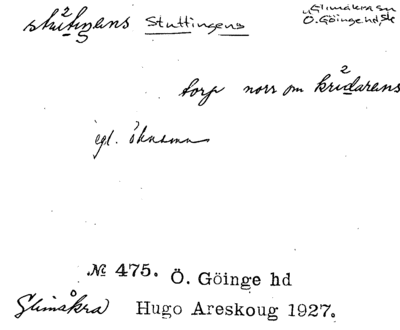 stutiŋens Stuttingens Glimåkra sn
Ö. Göinge hd, Sk
torp norr om kridarens
egl. öknamn
№ 475. Ö. Göinge hd
Glimåkra Hugo Areskoug 1927.